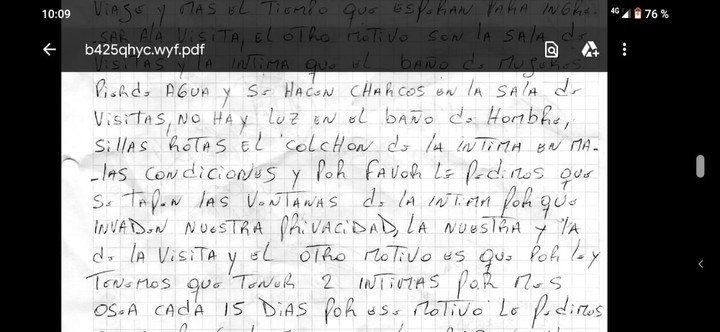 10:09
4G 76 %
b425qhyc.wyf.pdf
VIAJE Y MAS EL TIEMPO QUE ESPERAN PARA INGRE-
SAR A LA VISITA, EL OTRO MOTIVO SON LA SALA de
VISITAS Y LA INTIMA QUE EL BAÑO de MUJERES
PiERde AGUA Y SE HACEN CHARCOS EN LA SALA de
VISITAS, NO HAY LUZ EN EL BAÑO de HOMBRE,
SILLAS ROTAS EL COLCHON de LA INTIMA EN MA-
-LAS CONDICIONES Y POR FAVOR LE PEDIMOS QUE
SE TAPEN LAS VENTANAS de LA INTIMA PORQUE
INVADEN NUESTRA PRIVACIDAD, LA NUESTRA Y LA
de LA VISITA Y EL OTRO MOTIVO ES QUE POR LEY
TENEMOS QUE TENER 2 INTIMAS POR MES
OSEA CADA 15 DIAS POR ESE MOTIVO LE PEDIMOS